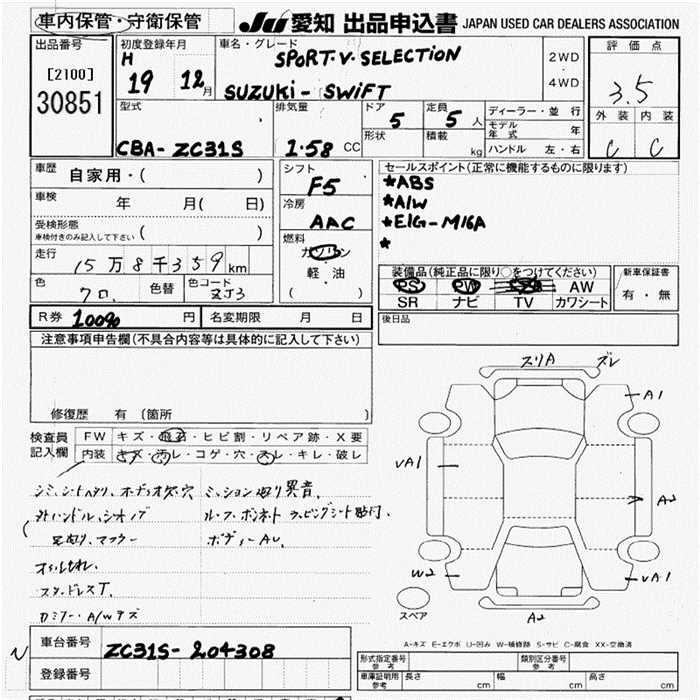 車内保管・守衛保管
JU 愛知 出品申込書 JAPAN USED CAR DEALERS ASSOCIATION
出品番号
[2100]
30851
初度登録年月
H
19 12月
車名・グレード
SPORT.V.SELECTION
SUZUKI - SWIFT
2WD
・
4WD
評価点
3.5
外装 内装
C C
型式
CBA- ZC31S
排気量
1.58 CC
ドア
5
形状
定員
5人
積載
kg
ディーラー・並行
モデル年式 年
ハンドル 左・右
車歴
自家用・( )
車検
年 月( 日)
受検形態
車検付きのみ記入して下さい ( )
走行
15万8千359km
色
クロ.
色替
色コード
ZJ3
シフト
F5
冷房
AAC
燃料
ガソリン
軽・油
( )
セールスポイント(正常に機能するものに限ります)
*ABS
*A/W
*E/G-M16A
*
装備品(純正品に限り○をつけてください)
PS PW AW
SR ナビ TV カワシート
新車保証書
有・無
R券 10090 円
名変期限 月 日
後日品
注意事項申告欄(不具合内容等は具体的に記入して下さい)
修復歴 有(箇所 )
検査員
記入欄
FW キズ・飛石・ヒビ割・リペア跡・X要
内装 キズ・汚レ・コゲ・穴・スレ・キレ・破レ
ミッション鳴り異音、
ボディーAU、
スタッドレスT.
スリA ズレ
A1
VA1
A2
W2
VA1
A2
スペア
A-キズ E-エクボ U-凹み W-補修跡 S-サビ C-腐食 XX-交換済
車台番号
ZC31S- 204308
登録番号
形式指定番号
参考
類別区分番号
参考
車庫証明用
参考
長さ cm 幅 cm 高さ cm